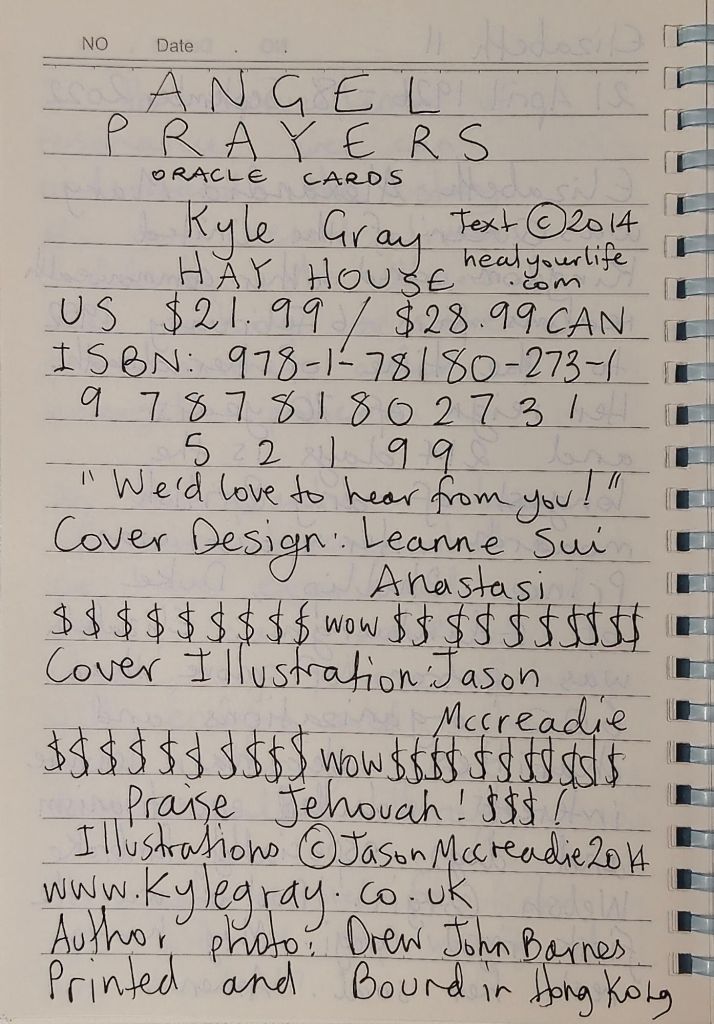 NO Date . .
ANGEL
PRAYERS
ORACLE CARDS
Kyle Gray Text ©2014
HAY HOUSE healyourlife.com
US $21.99 / $28.99 CAN
ISBN: 978-1-78180-273-1
9 7 8 7 8 1 8 0 2 7 3 1
5 2 1 9 9
"We'd love to hear from you!"
Cover Design: Leanne Sui
Anastasi
$ $ $ $ $ $ $ $ $ wow $ $ $ $ $ $ $ $ $ $
Cover Illustration: Jason
Mccreadie
$ $ $ $ $ $ $ $ $ $ wow $ $ $ $ $ $ $ $ $ $ $
Praise Jehovah! $$$!
Illustrations © Jason Mccreadie 2014
www.kylegray.co.uk
Author photo: Drew John Barnes
Printed and Bound in Hong Kong